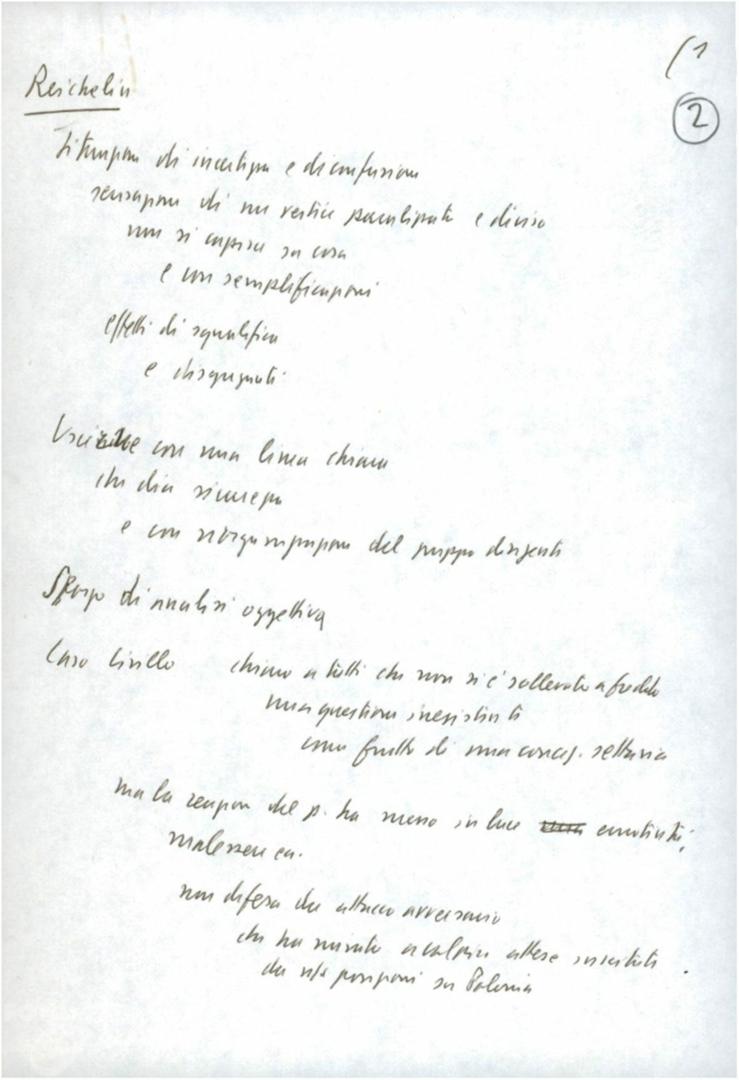 (1
2
Reichelin
Situazione di incertezza e di confusione
sensazione di un vertice paralizzato e diviso
non si capisce su cosa
e con semplificazioni
effetti di squalifica
e disgregati
Uscirne con una linea chiara
che dia sicurezza
e con riorganizzazione del gruppo dirigente
Sforzo di analisi oggettiva
Caso Civello chiaro a tutti che non si è sollevata a freddo
una questione inesistente
come frutto di una concez. settaria
ma la reazione del p. ha messo in luce emotività,
malessere ecc.
non difesa da attacco avversario
che ha mirato a colpire attese suscitate
da ns/ posizioni su Polonia